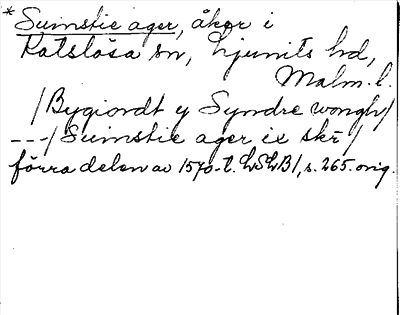 *Suinstie ager, åker i
Katslösa sn, Ljunits hd,
Malm. l.
/Bygiordt y Syndre wongh/
---/Suinstie ager ix skr/
förra delen av 1570-t. LSLB1, s. 265. orig.